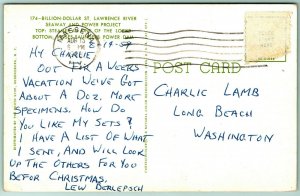 174-BILLION-DOLLAR ST. LAWRENCE RIVER
SEAWAY AND POWER PROJECT
8-19-59
HY CHARLIE
OUT FOR A WEEKS
VACATION WE'VE GOT
ABOUT A DOZ. MORE
SPECIMENS. HOW DO
YOU LIKE MY SETS?
I HAVE A LIST OF WHAT
I SENT, AND WILL LOOK
UP THE OTHERS FOR YOU
BEFOR CHRISTMAS,
LEW BERLEPSCH
POST CARD
CHARLIE LAMB
LONG BEACH
WASHINGTON